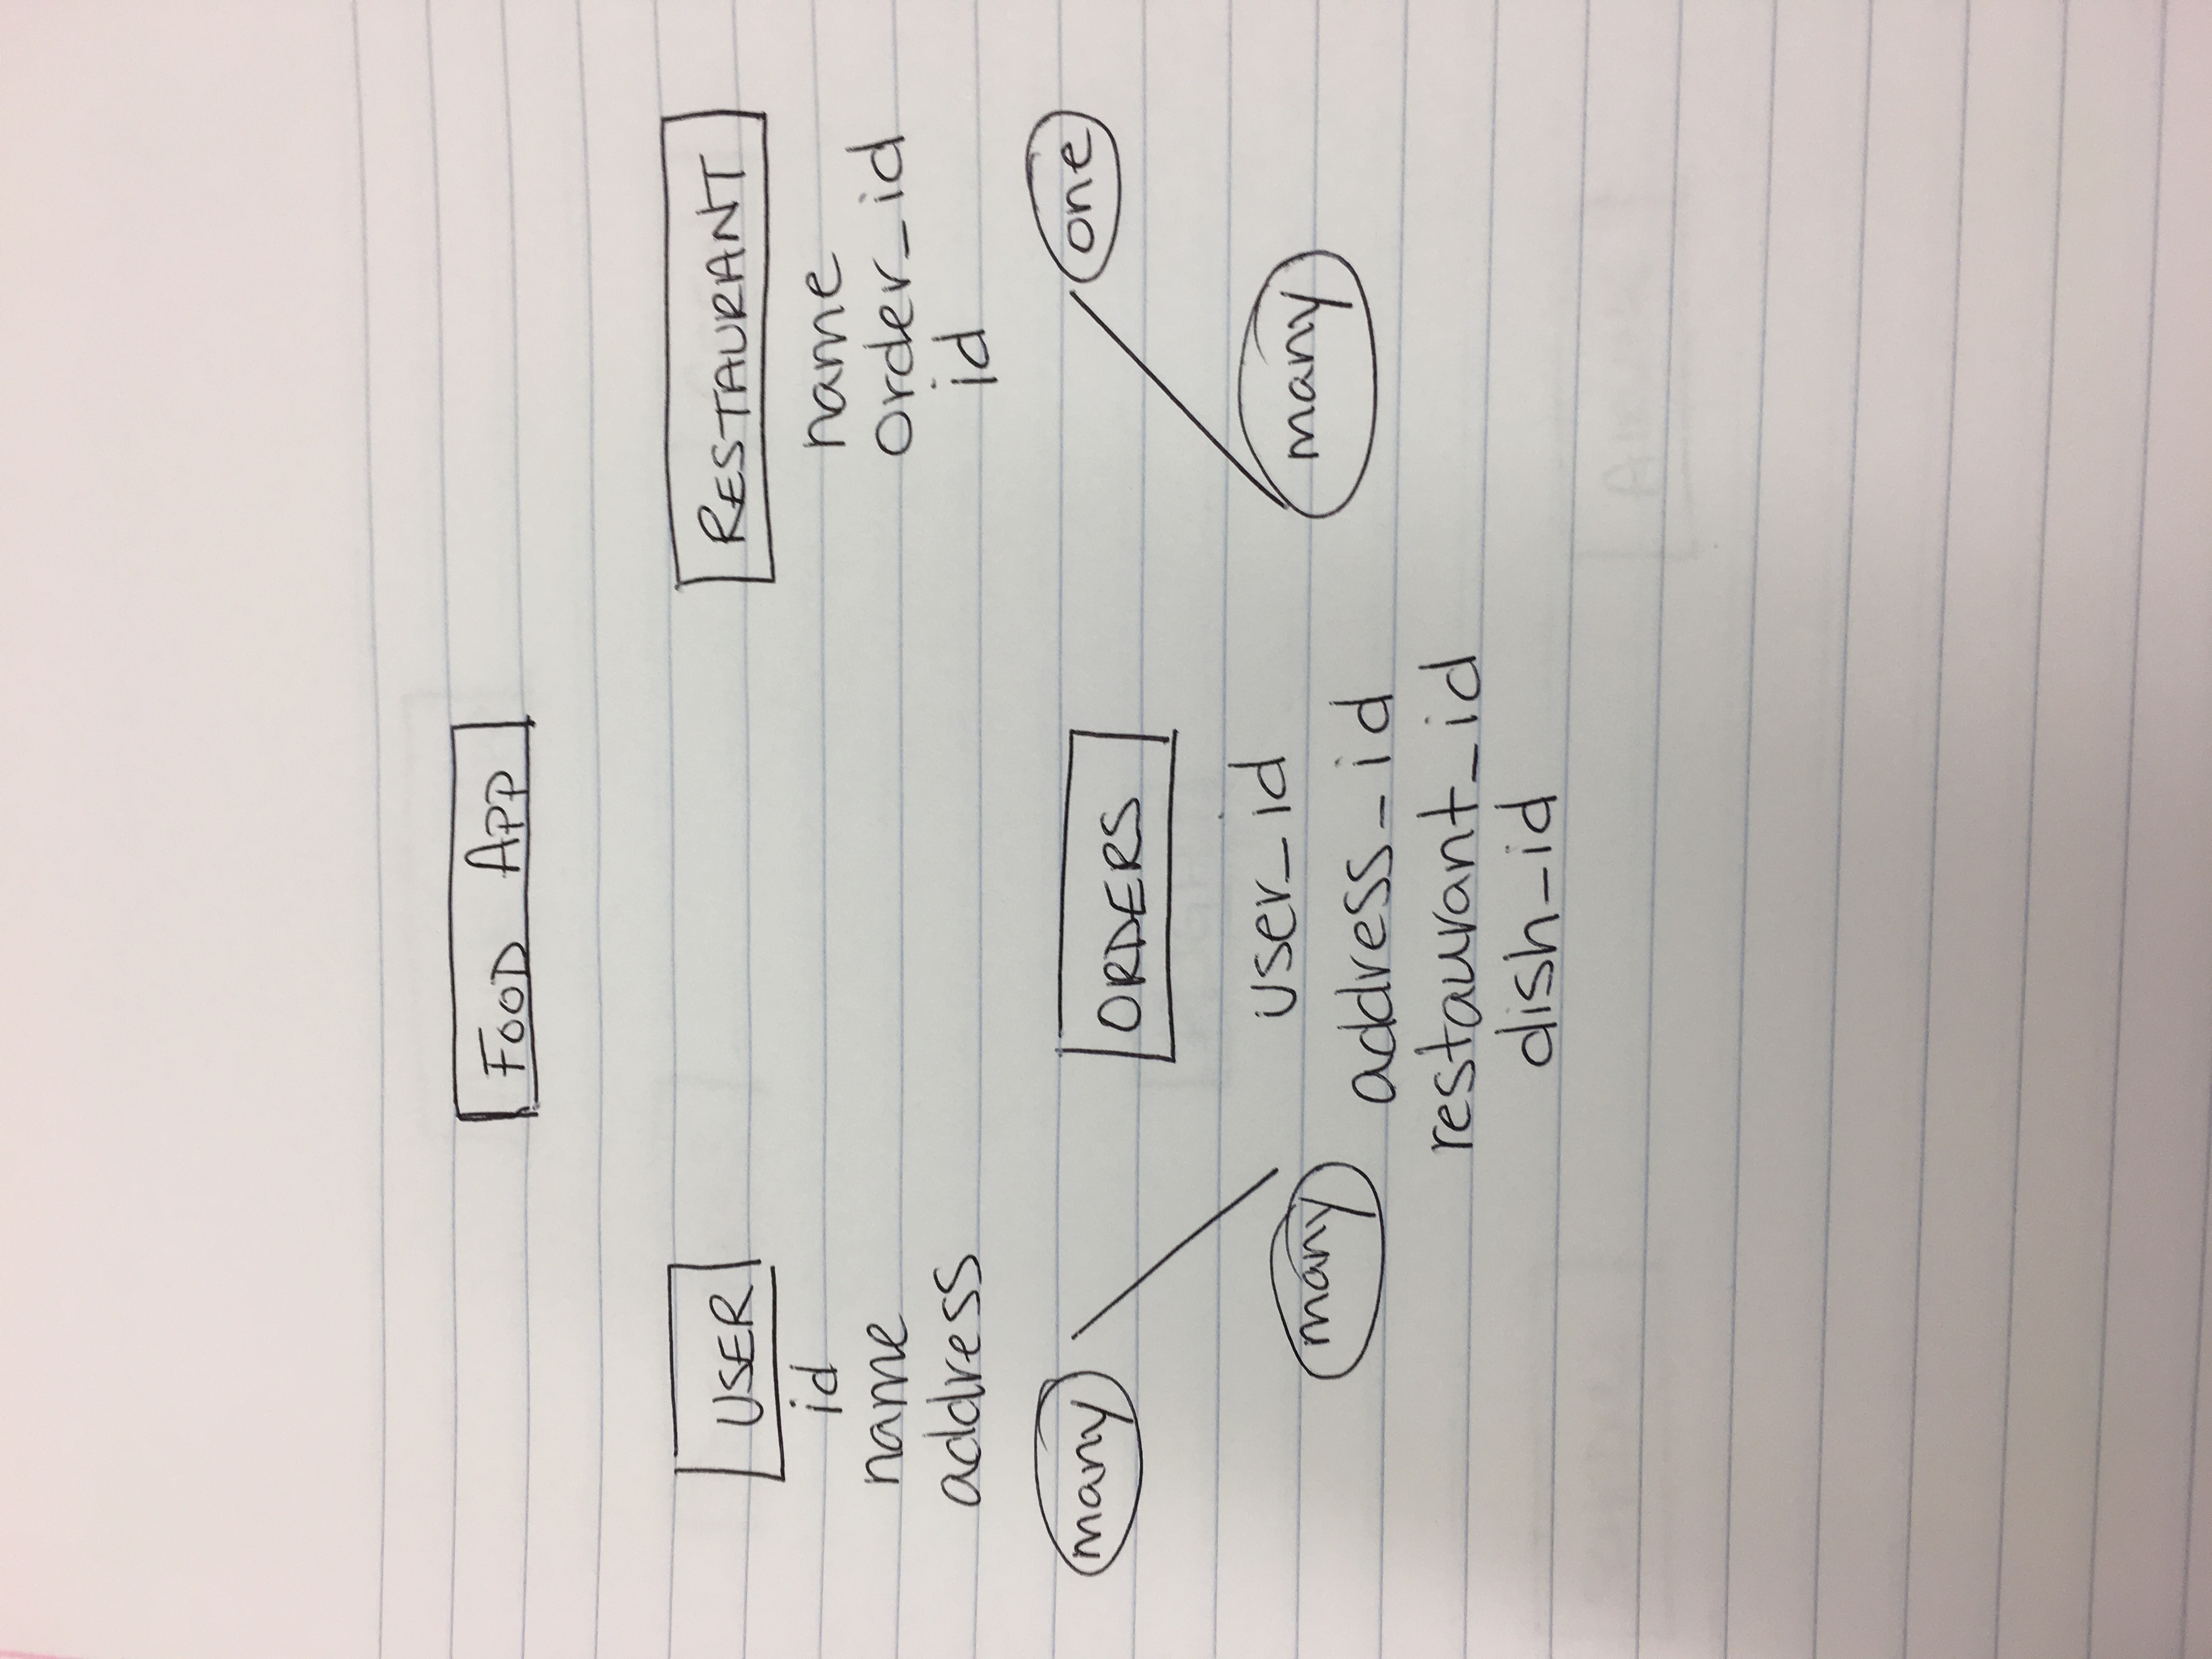 FOOD APP
USER
id
name
address
RESTAURANT
name
order_id
id
many
many
ORDERS
user_id
address_id
restaurant_id
dish_id
one
many